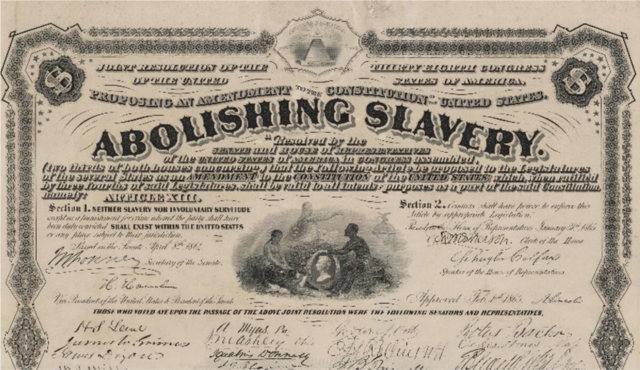 JOINT RESOLUTION OF THE THIRTY EIGHTH CONGRESS
OF THE UNITED STATES OF AMERICA,
PROPOSING AN AMENDMENT TO THE CONSTITUTION OF THE UNITED STATES,
ABOLISHING SLAVERY.
"Resolved by the
SENATE and HOUSE OF REPRESENTATIVES
of the UNITED STATES OF AMERICA IN CONGRESS assembled,
(two thirds of both houses concurring) that the following article be proposed to the Legislatures
of the several States as an AMENDMENT to the CONSTITUTION of the UNITED STATES which, when ratified
by three fourths of said Legislatures, shall be valid to all intents & purposes as a part of the said Constitution,
namely: ARTICLE XIII.
Section 1. NEITHER SLAVERY NOR INVOLUNTARY SERVITUDE
except as a punishment for crime whereof the party shall have
been duly convicted SHALL EXIST WITHIN THE UNITED STATES
or any place subject to their jurisdiction.
Section 2. Congress shall have power to enforce this
Article by appropriate Legislation.
Passed in the Senate April 8th 1864
Secretary of the Senate.
H. Hamlin
Vice President of the United States & President of the Senate
House of Representatives January 31st 1865
Clerk of the House
Schuyler Colfax
Speaker of the House of Representatives
Approved Feb. 1st 1865. A. Lincoln
THOSE WHO VOTED AYE UPON THE PASSAGE OF THE ABOVE JOINT RESOLUTION WERE THE FOLLOWING SENATORS AND REPRESENTATIVES.
H S Lane
A Myers
James W Grimes
Ignatius Donnelly